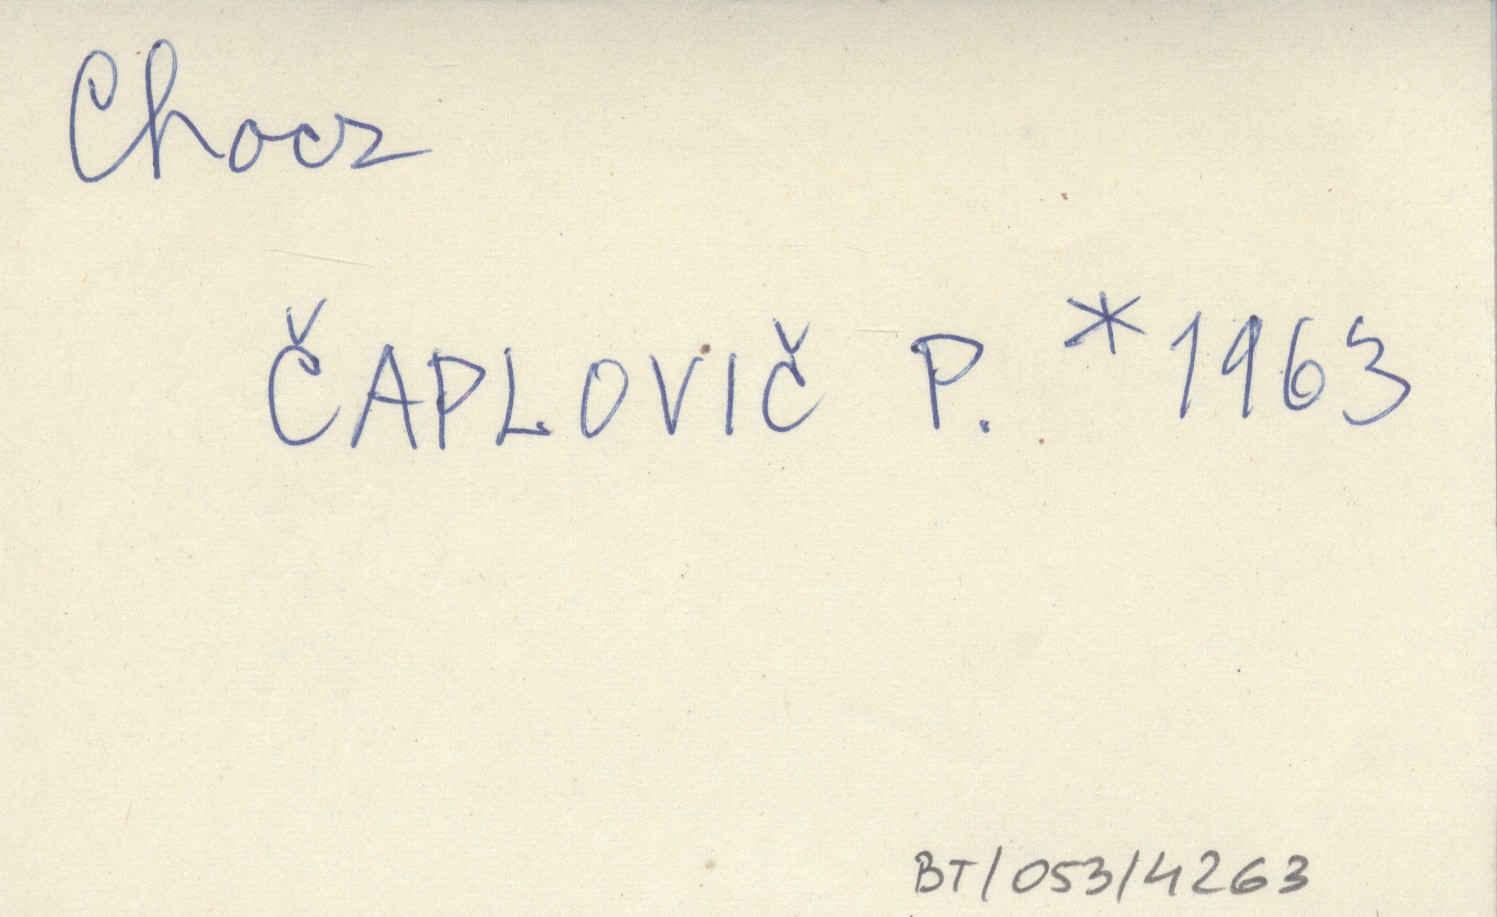 Chocz
ČAPLOVIČ P. *1963
BT/053/4263